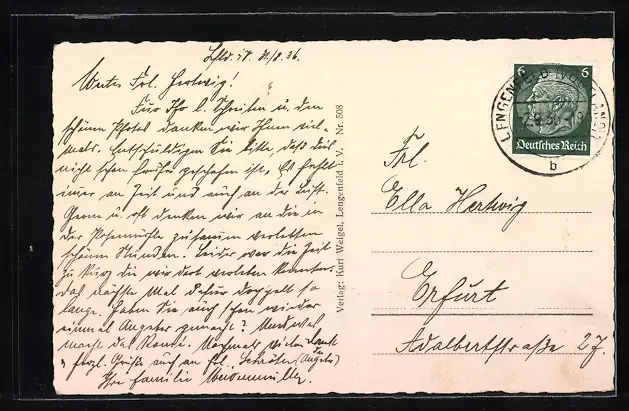 Lfld. i/V. 31/8.36.
Wertes Frl. Hertwig!
Für Ihr l. Schreiben u. den
schönen Photos danken wir Ihnen viel-
mals. Entschuldigen Sie bitte, daß dies
nicht schon früher geschehen ist. Es fehlt
immer an Zeit und auch an der Lust.
Gerne u. oft denken wir an die in
der zusammen verlebten
schönen Stunden. Leider war die Zeit
zu kurz die wir dort verleben konnten.
das nächste Mal dafür doppelt so
lange. Haben Sie auch schon wieder
einmal gemacht? Und was
macht das Nochmals vielen Dank
u. herzl. Grüße auch an Frl. Schröter
Ihre Familie
Verlag: Kurt Weigel, Lengenfeld i. V. Nr. 508
6 6
Deutsches Reich
LENGENFELD (VOGTLAND)
b
Frl.
Ella Hertwig
Erfurt
Adalbertstraße 27.